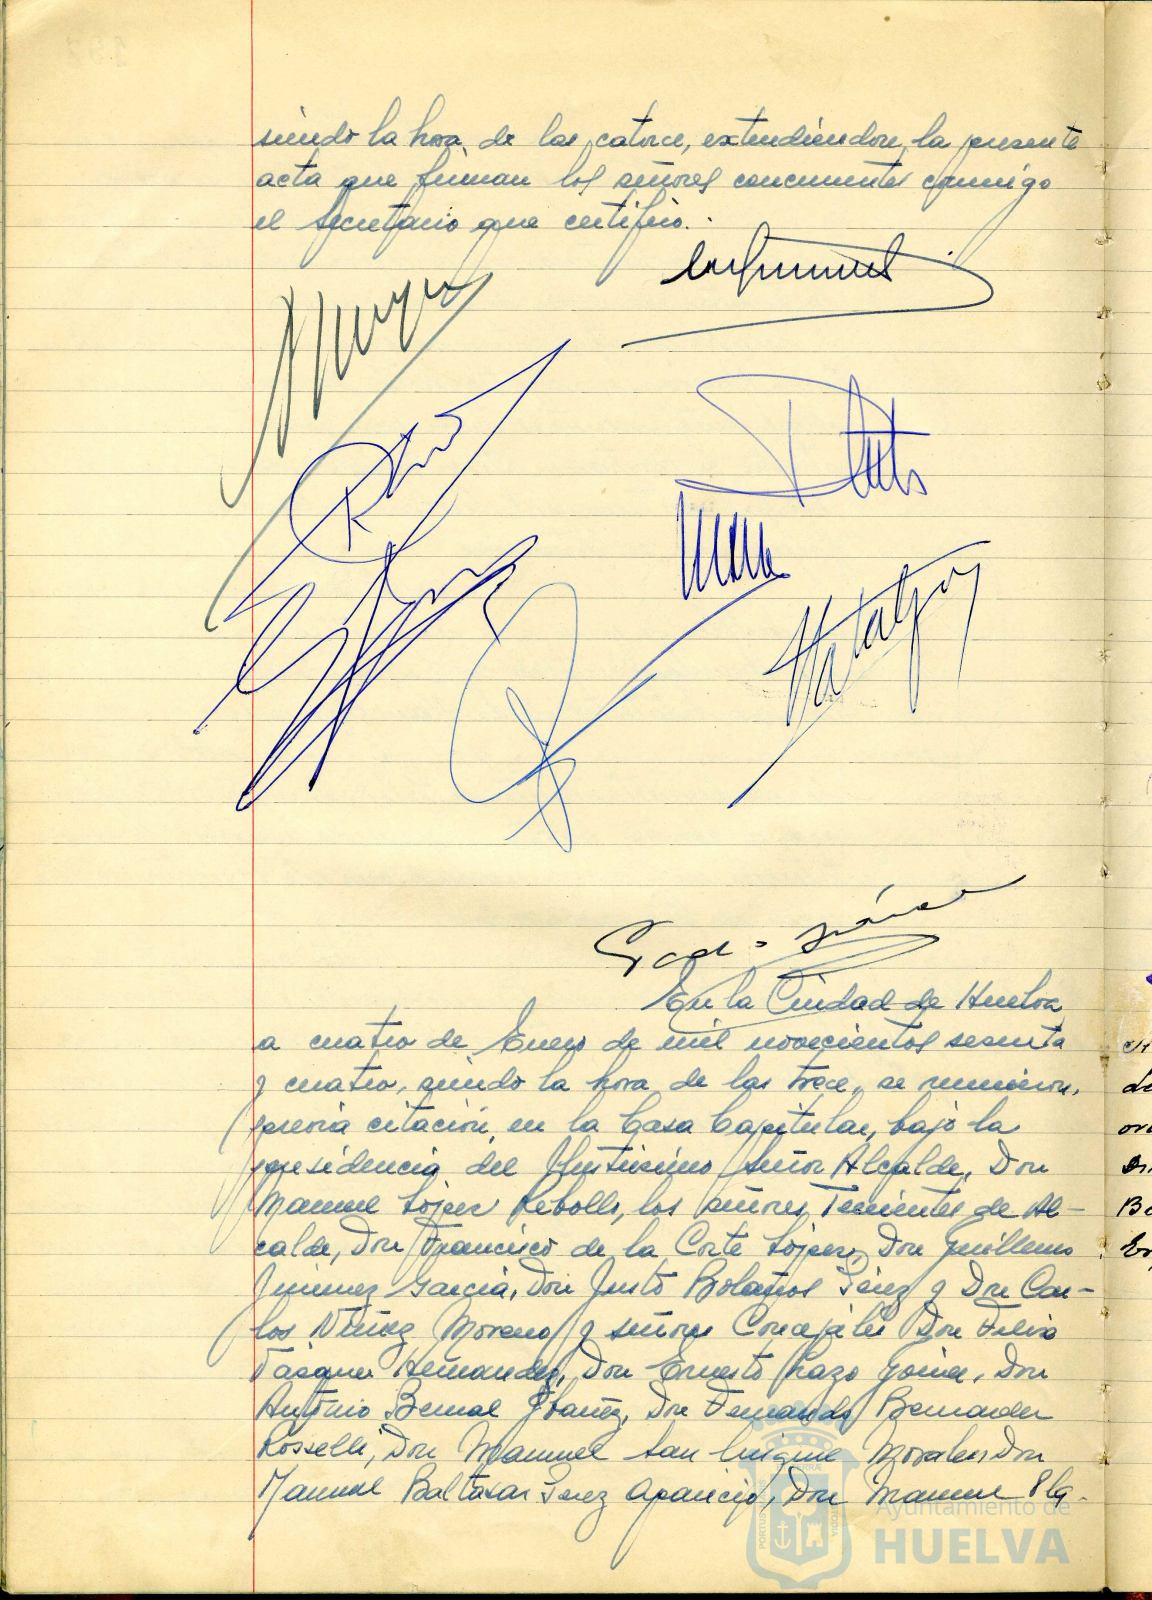 siendo la hora de las catorce, extendiéndose la presente
acta que firman los señores concurrentes conmigo
el Secretario que certifico.
En la Ciudad de Huelva
a cuatro de Enero de mil novecientos sesenta
y cuatro, siendo la hora de las trece, se reunieron,
previa citación, en la Casa Capitular, bajo la
presidencia del Ilustrísimo Señor Alcalde, Don
Manuel López Rebollo, los señores Tenientes de Al-
calde, Don Francisco de la Corte López, Don Guillermo
Jimenez García, Don Justo Bolaños Pérez y Don Car-
los Núñez Moreno y señores Concejales Don
Vázquez Hernandez, Don Ernesto Lazo Don
Antonio Bernal Ibáñez, Don Fernando Bernardez
Rosselli, Don Manuel San Miguel Morales Don
Manuel Baltasar Perez Aparicio, Don Manuel
Ayuntamiento de
HUELVA